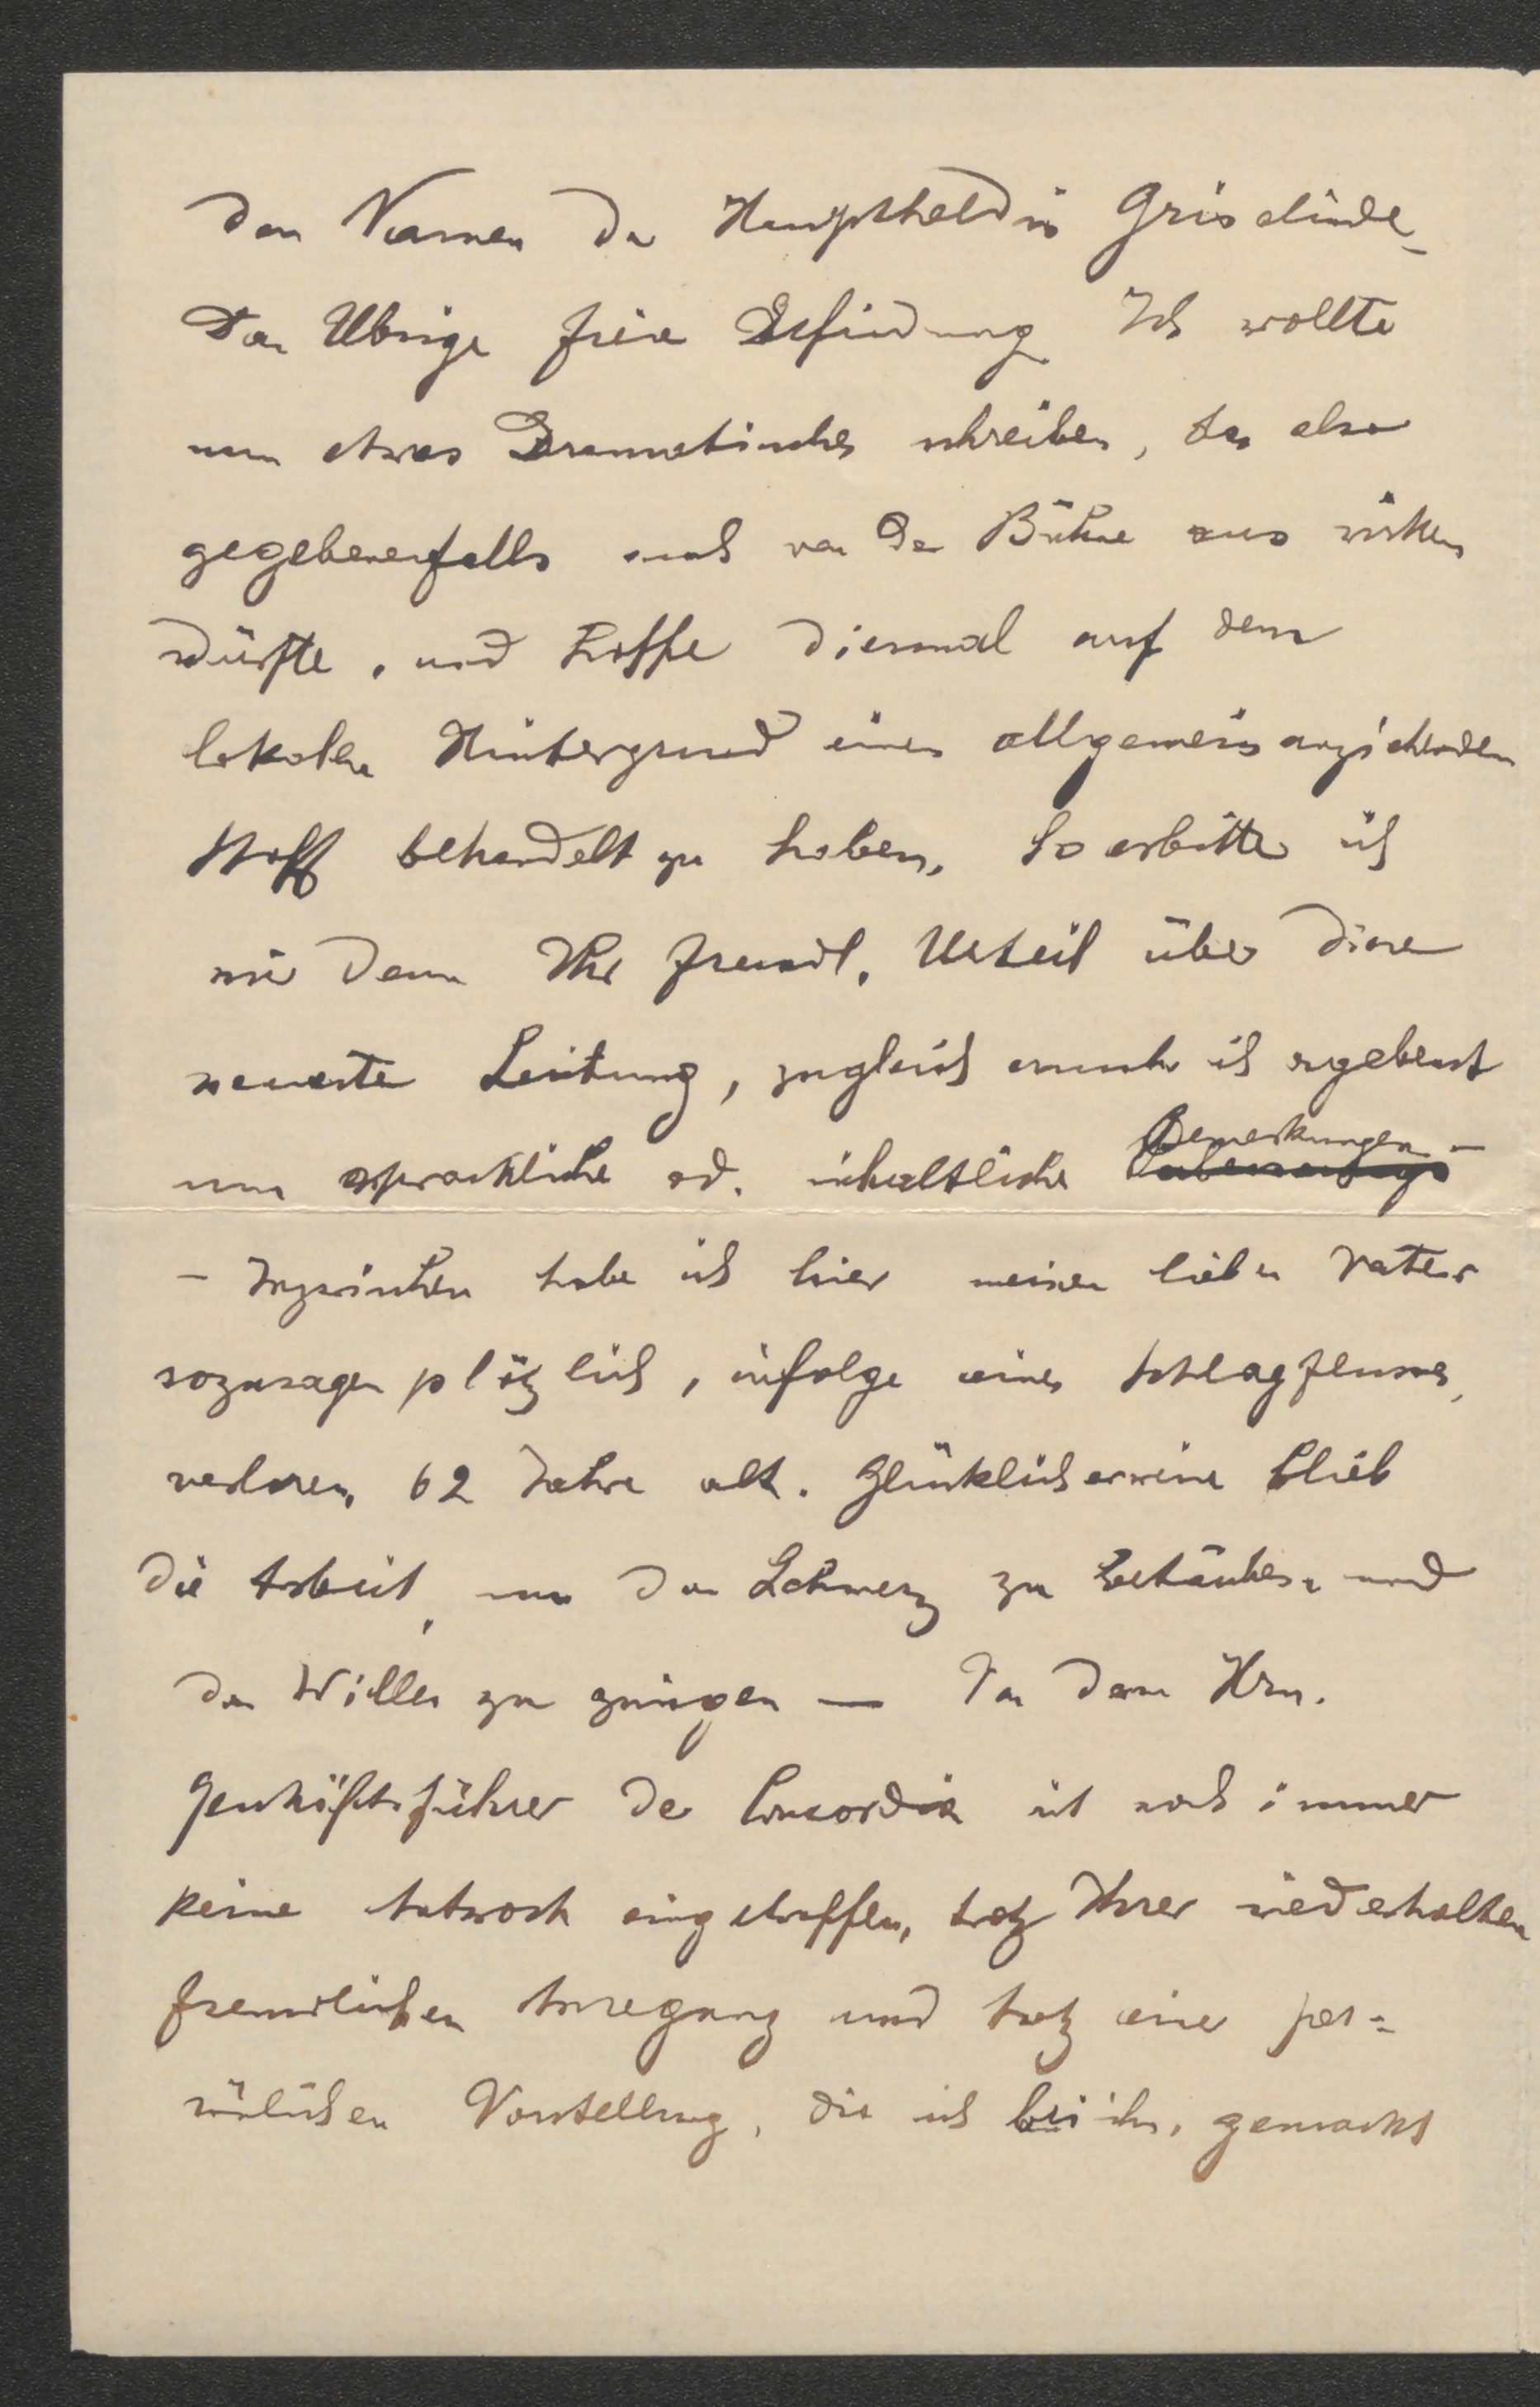 den Namen der Hauptheldin Griselinde.
Das Übrige freie Erfindung Ich wollte
nun etwas Dramatisches schreiben, das also
gegebenenfalls auch von der Bühne aus wirken
dürfte, und hoffe diesmal auf dem
lokalen Hintergrund einen allgemein anziehenden
Stoff behandelt zu haben. So erbitte ich
mir denn Ihr freundl. Urteil über diese
neueste Leistung, zugleich ersuche ich ergebenst
um sprachliche od. inhaltliche Bemerkungen –
– Inzwischen habe ich hier meinen lieben Vater
sozusagen plötzlich, infolge eines Schlagflusses,
verloren, 62 Jahre alt. Glücklicherweise blieb
die Arbeit, um den Schmerz zu betäuben und
den Willen zu zwingen — Von dem Hrn.
Geschäftsführer der Concordia ist noch immer
keine Antwort eingetroffen, trotz Ihrer wiederholten
freundlichen Anregung und trotz einer per=
sönlichen Vorstellung, die ich bei ihm gemacht